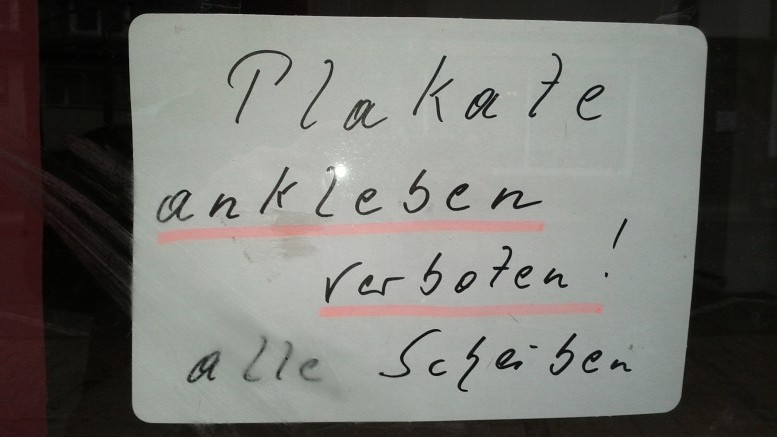 Plakate
ankleben
verboten!
alle Scheiben